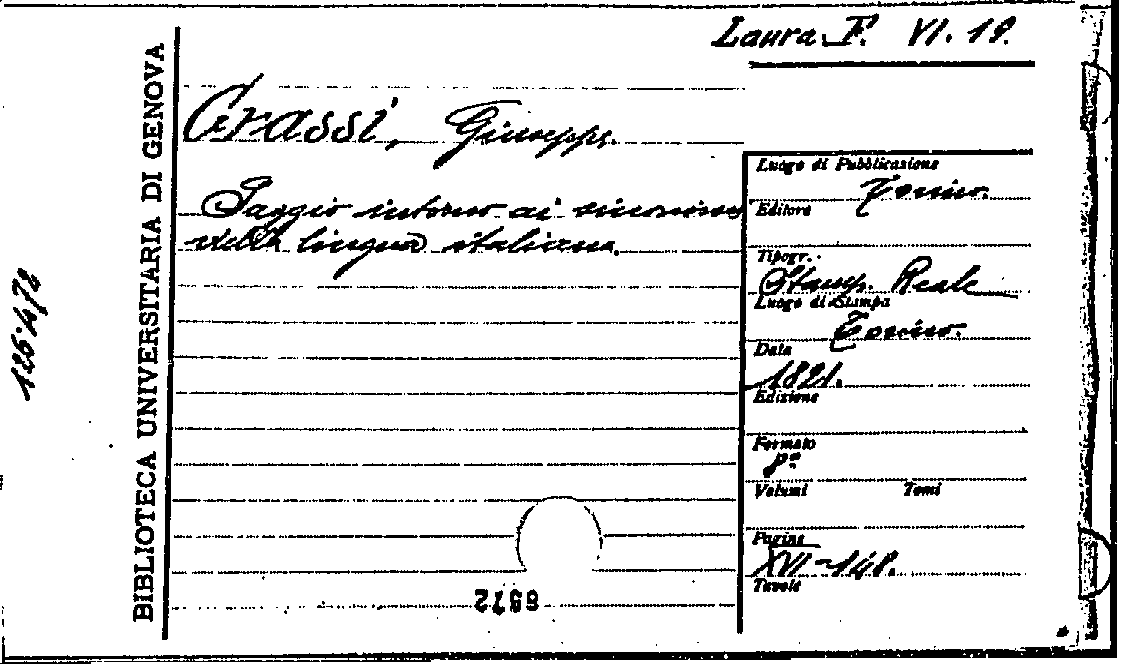 Laura F. VI. 19.
BIBLIOTECA UNIVERSITARIA DI GENOVA
126.472
Grassi, Giuseppe.
Saggio intorno ai sinonimi
della lingua italiana.
Luogo di Pubblicazione
Torino.
Editore
Tipogr.
Stamp. Reale
Luogo di Stampa
Torino.
Data
1821.
Edizione
Formato
8º
Volumi Tomi
Pagine
XVI-148.
Tavole